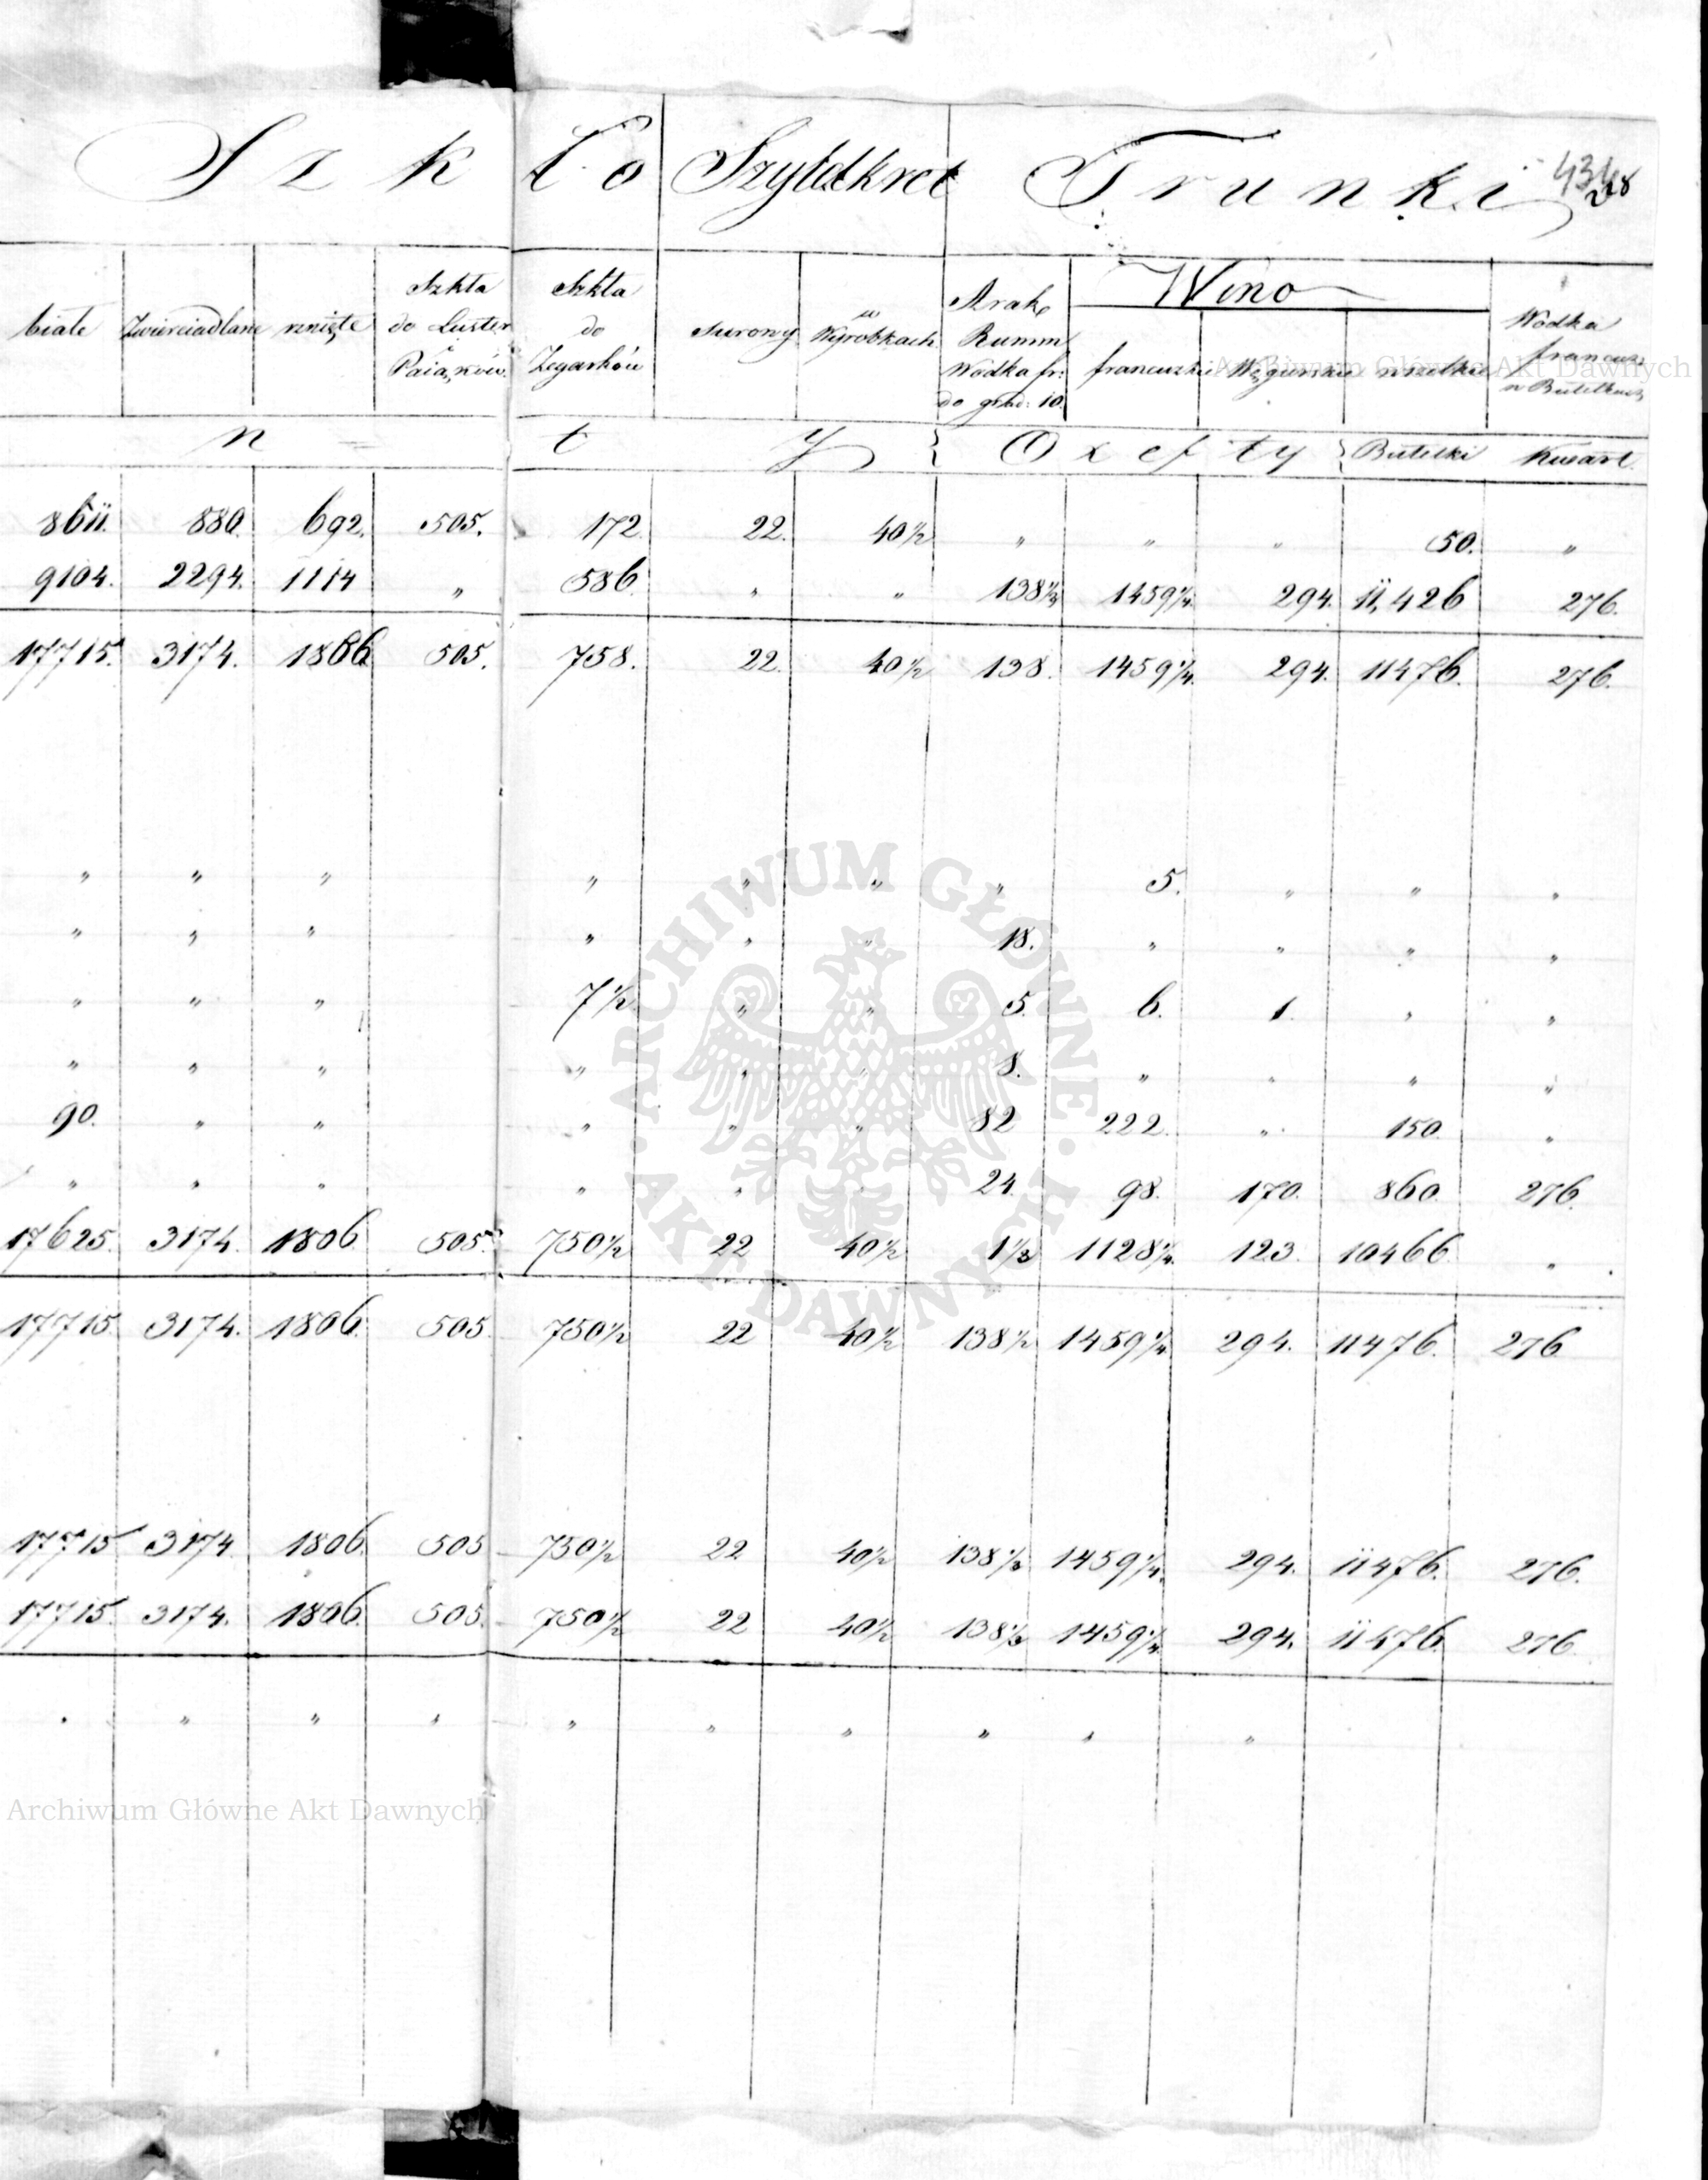 Szkło Szyldkret Trunki 434
białe Zwierciadlane rznięte Szkła do Luster i Paiąków Szkła do Zegarków Surowy w Wyrobkach Arak, Rumm Wodka fr: do grad: 10. Wino francuzkie Węgierskie wszelkie Wodka francus: w Butelkach
n t y Oxefty Butelki Kwart
8611. 880. 692. 505. 172. 22. 40½ " " " 50. "
9104. 2294. 1114 " 586 " " 138⅓ 1459¼. 294. 11,426 276.
17715. 3174. 1806 505. 758. 22. 40½ 138. 1459¼. 294. 11476. 276.
" " " " " " " 5. " " "
" " " " " " 18. " " " "
" " " 7½ " " 5. 6. 1. " "
" " " " " " 8. " " " "
90. " " " " " 82 222. " 150. "
" " " " " " 24. 98. 170. 860. 276.
17625. 3174. 1806. 505. 750½ 22 40½ 1⅓ 1128¼. 123. 10466 "
17715. 3174. 1806. 505. 750½ 22 40½ 138½ 1459¼ 294. 11476. 276
17715 3174 1806. 505 750½ 22 40½ 138⅓ 1459¼. 294. 11476. 276.
17715. 3174. 1806. 505. 750½ 22 40½ 138⅓ 1459¼ 294. 11476. 276.
" " " " " " " " " "
Archiwum Główne Akt Dawnych
ARCHIWUM GŁÓWNE · AKT DAWNYCH ·
Archiwum Główne Akt Dawnych